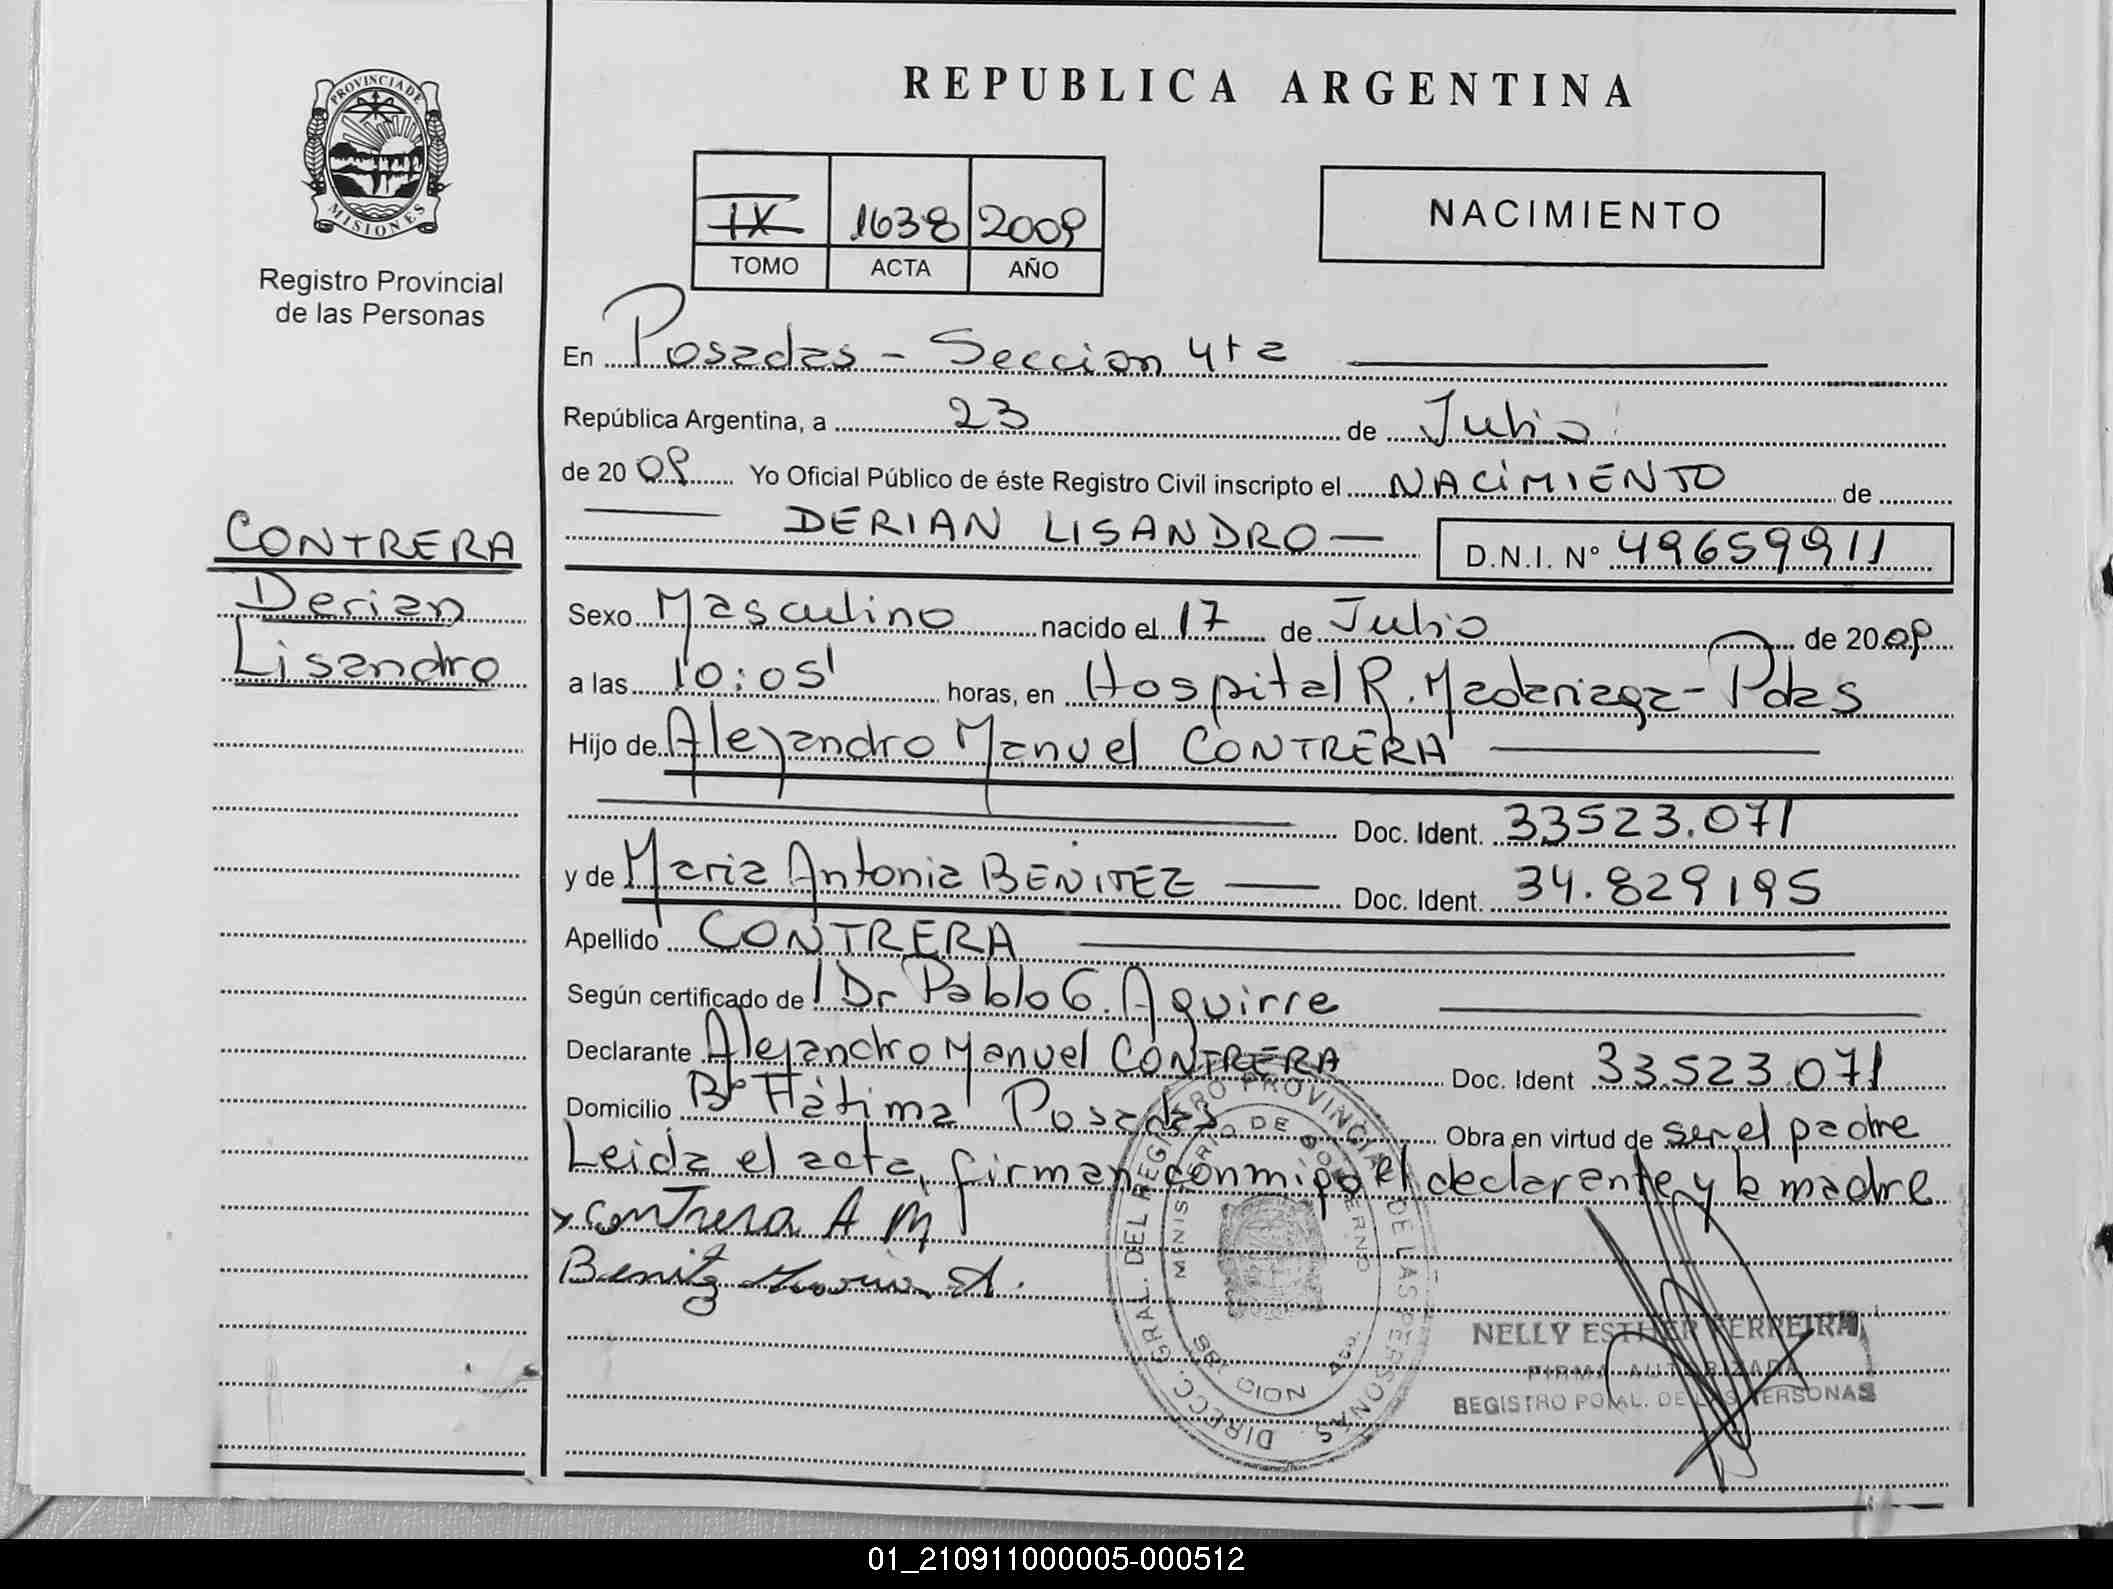 PROVINCIA DE
MISIONES
Registro Provincial
de las Personas
CONTRERA
Derian
Lisandro
REPUBLICA ARGENTINA
IX 1638 2009
TOMO ACTA AÑO
NACIMIENTO
En Posadas - Seccion 4ta
República Argentina, a 23 de Julio
de 2009 Yo Oficial Público de éste Registro Civil inscripto el NACIMIENTO de
DERIAN LISANDRO D.N.I. Nº 49659911
Sexo Masculino nacido el 17 de Julio de 2009
a las 10:05' horas, en Hospital R. Madariaga - Pdas
Hijo de Alejandro Manuel CONTRERA
Doc. Ident. 33523.071
y de Maria Antonia BENITEZ Doc. Ident. 34.829195
Apellido CONTRERA
Según certificado de Dr Pablo G. Aguirre
Declarante Alejandro Manuel CONTRERA Doc. Ident 33.523.071
Domicilio Bº Fátima Posadas Obra en virtud de ser el padre
Leida el acta, firman conmigo el declarante y la madre
contrera A M
Benitz Maria A.
DIRECC. GRAL. DEL REGISTRO PROVINCIAL DE LAS PERSONAS
MINISTERIO DE GOBIERNO
NELLY ESTHER FERREIRA
FIRMA AUTORIZADA
REGISTRO PCIAL. DE LAS PERSONAS
01_210911000005-000512